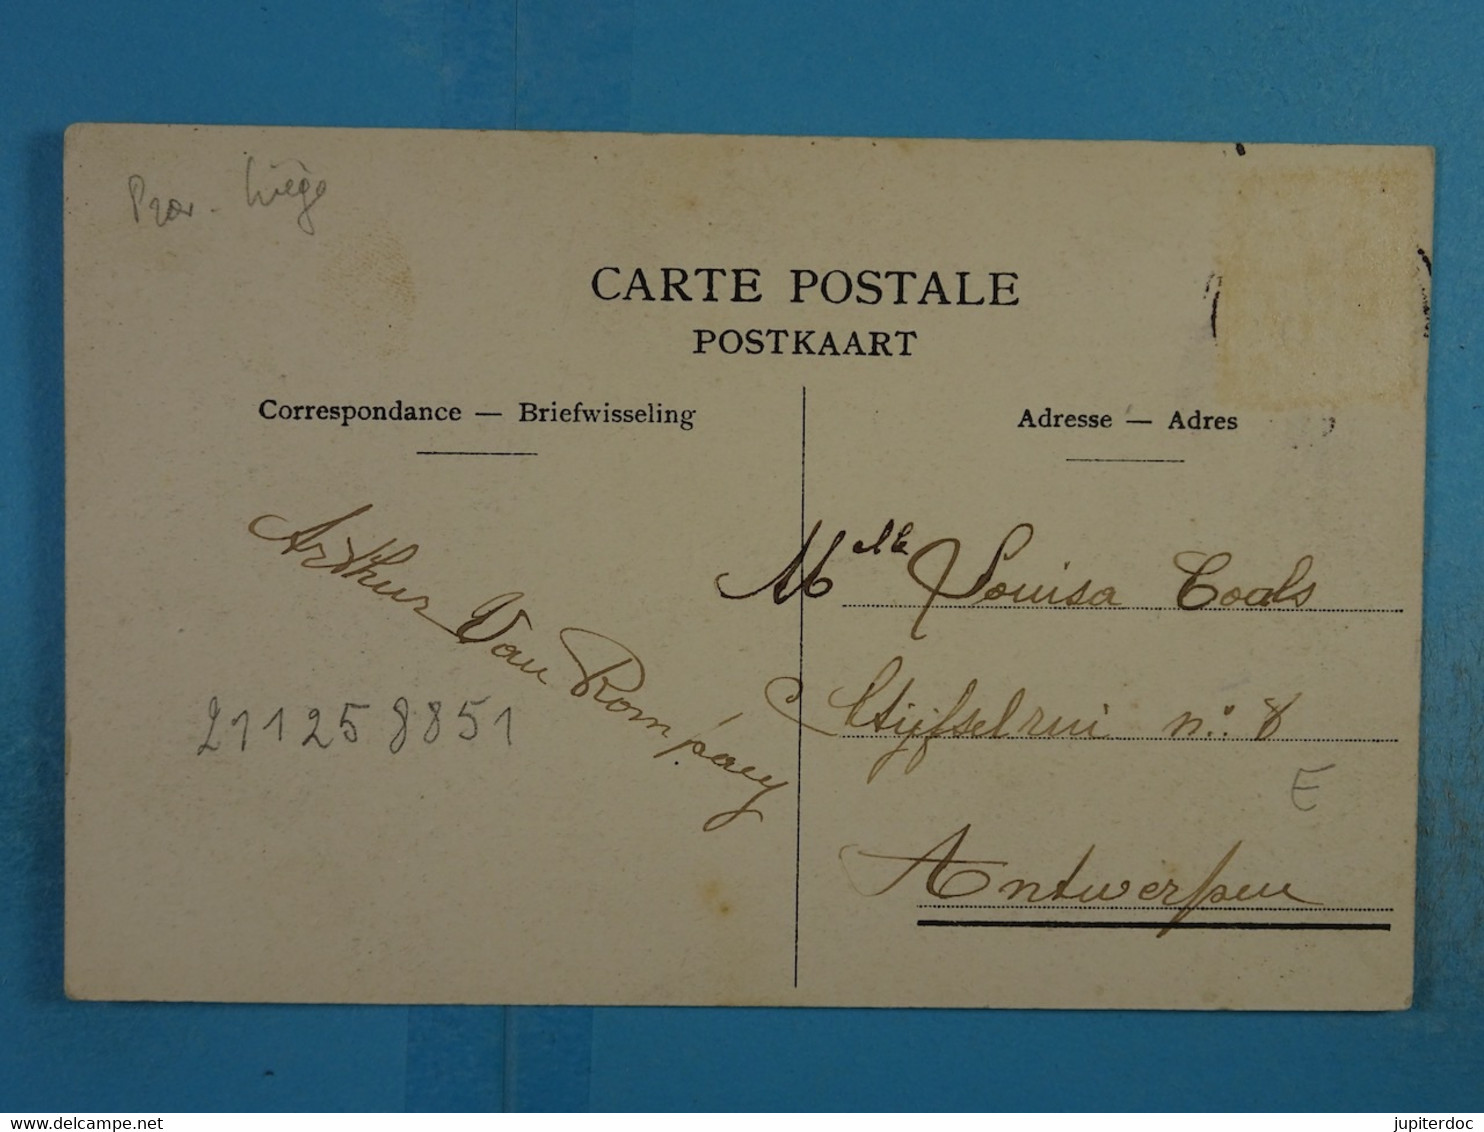 Prov. Liège
CARTE POSTALE
POSTKAART
Correspondance — Briefwisseling
Adresse — Adres
Arthur Van Rompaey
211258851
Melle Louisa Cools
Stijfselrui no: 8
E
Antwerpen
delcampe.net
jupiterdoc